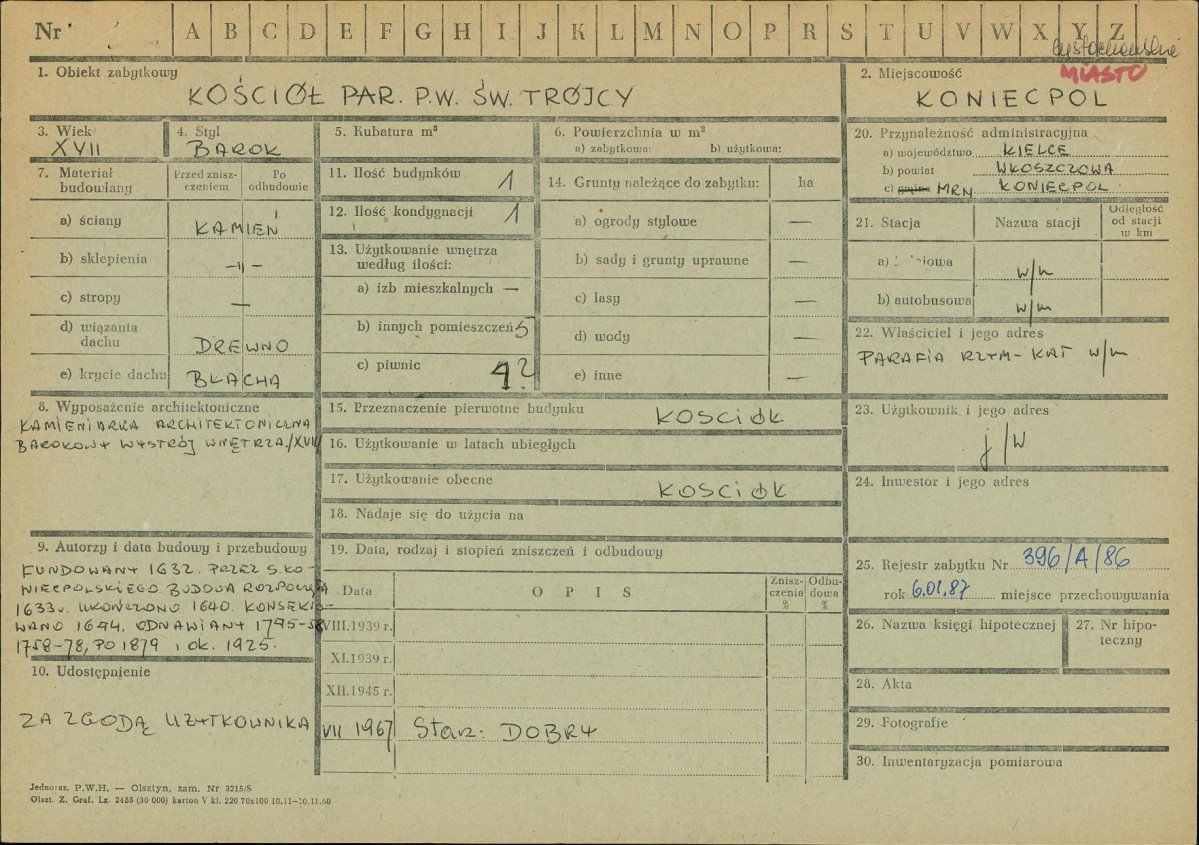 Nr A B C D E F G H I J K L M N O P R S T U V W X Y Z
MIASTO
1. Obiekt zabytkowy
KOŚCIÓŁ PAR. P.W. ŚW. TRÓJCY
2. Miejscowość
KONIECPOL
3. Wiek
XVII
4. Styl
BAROK
5. Kubatura m³
6. Powierzchnia w m²
a) zabytkowa: b) użytkowa:
7. Materiał budowlany
Przed zniszczeniem
Po odbudowie
a) ściany
KAMIEŃ
b) sklepienia
–„–
c) stropy
—
d) wiązania dachu
DREWNO
e) krycie dachu
BLACHA
8. Wyposażenie architektoniczne
KAMIENIARKA ARCHITEKTONICZNA
BAROKOWY WYSTRÓJ WNĘTRZA/XVII
9. Autorzy i data budowy i przebudowy
FUNDOWANY 1632. PRZEZ S. KO-
NIECPOLSKIEGO BUDOWA ROZPOCZĘTA
1633r. UKOŃCZONO 1640. KONSEKRO-
WANO 1644. ODNAWIANY 1745-58
1758-78, PO 1879 i OK. 1925.
10. Udostępnienie
ZA ZGODĄ UŻYTKOWNIKA
11. Ilość budynków
1
12. Ilość kondygnacji
1
13. Użytkowanie wnętrza
według ilości:
a) izb mieszkalnych —
b) innych pomieszczeń 5
c) piwnic
1?
14. Grunty należące do zabytku: ha
a) ogrody stylowe —
b) sady i grunty uprawne —
c) lasy —
d) wody —
e) inne —
15. Przeznaczenie pierwotne budynku
KOŚCIÓŁ
16. Użytkowanie w latach ubiegłych
17. Użytkowanie obecne
KOŚCIÓŁ
18. Nadaje się do użycia na
19. Data, rodzaj i stopień zniszczeń i odbudowy
Data
O P I S
Zniszczenia %
Odbudowa %
VIII.1939 r.
XI.1939 r.
XII.1945 r.
VII 1967 Stan. DOBRY
20. Przynależność administracyjna
a) województwo KIELCE
b) powiat WŁOSZCZOWA
c) gmina MRN KONIECPOL
21. Stacja
Nazwa stacji
Odległość od stacji w km
w/m
b) autobusowa w/m
22. Właściciel i jego adres
PARAFIA RZYM-KAT w/m
23. Użytkownik i jego adres
j/w
24. Inwestor i jego adres
25. Rejestr zabytku Nr 396/A/86
rok 6.01.87 miejsce przechowywania
26. Nazwa księgi hipotecznej
27. Nr hipo-
teczny
28. Akta
29. Fotografie
30. Inwentaryzacja pomiarowa
Jednoraz. P.W.H. — Olsztyn, zam. Nr 3215/S
Olszt. Z. Graf. Lz. 2485 (30 000) karton V kl. 220 70x100 10.11—10.11.60